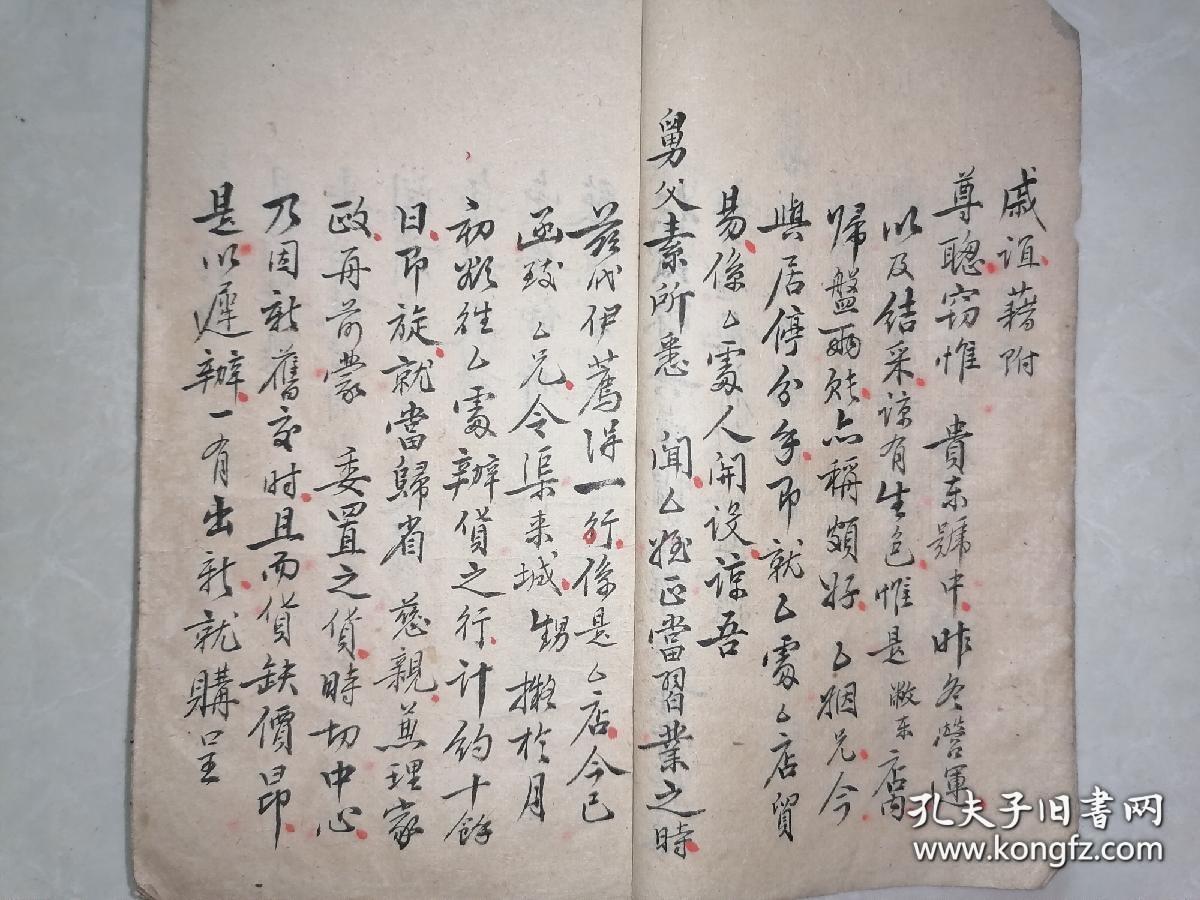 戚誼藉附
尊聰竊惟 貴东號中昨冬營運
以及结采諒有生色惟是敝东店內
歸盤爾賬亦稱頗好乙姻兄今
與居停分手即就乙處乙店貿
易係乙處人開設諒吾
舅父素所悉 聞乙姪正當習業之時
茲代伊薦得一行係是乙店今已
函致乙兄令渠来城甥擬於月
初欲往乙處辦貨之行計約十餘
日即旋就當歸省 慈親兼理家
政再前蒙 委置之貨時切中心
乃因新舊交时且而貨缺價昂
是以遲辦一有出新就購呈
孔夫子旧书网
www.kongfz.com